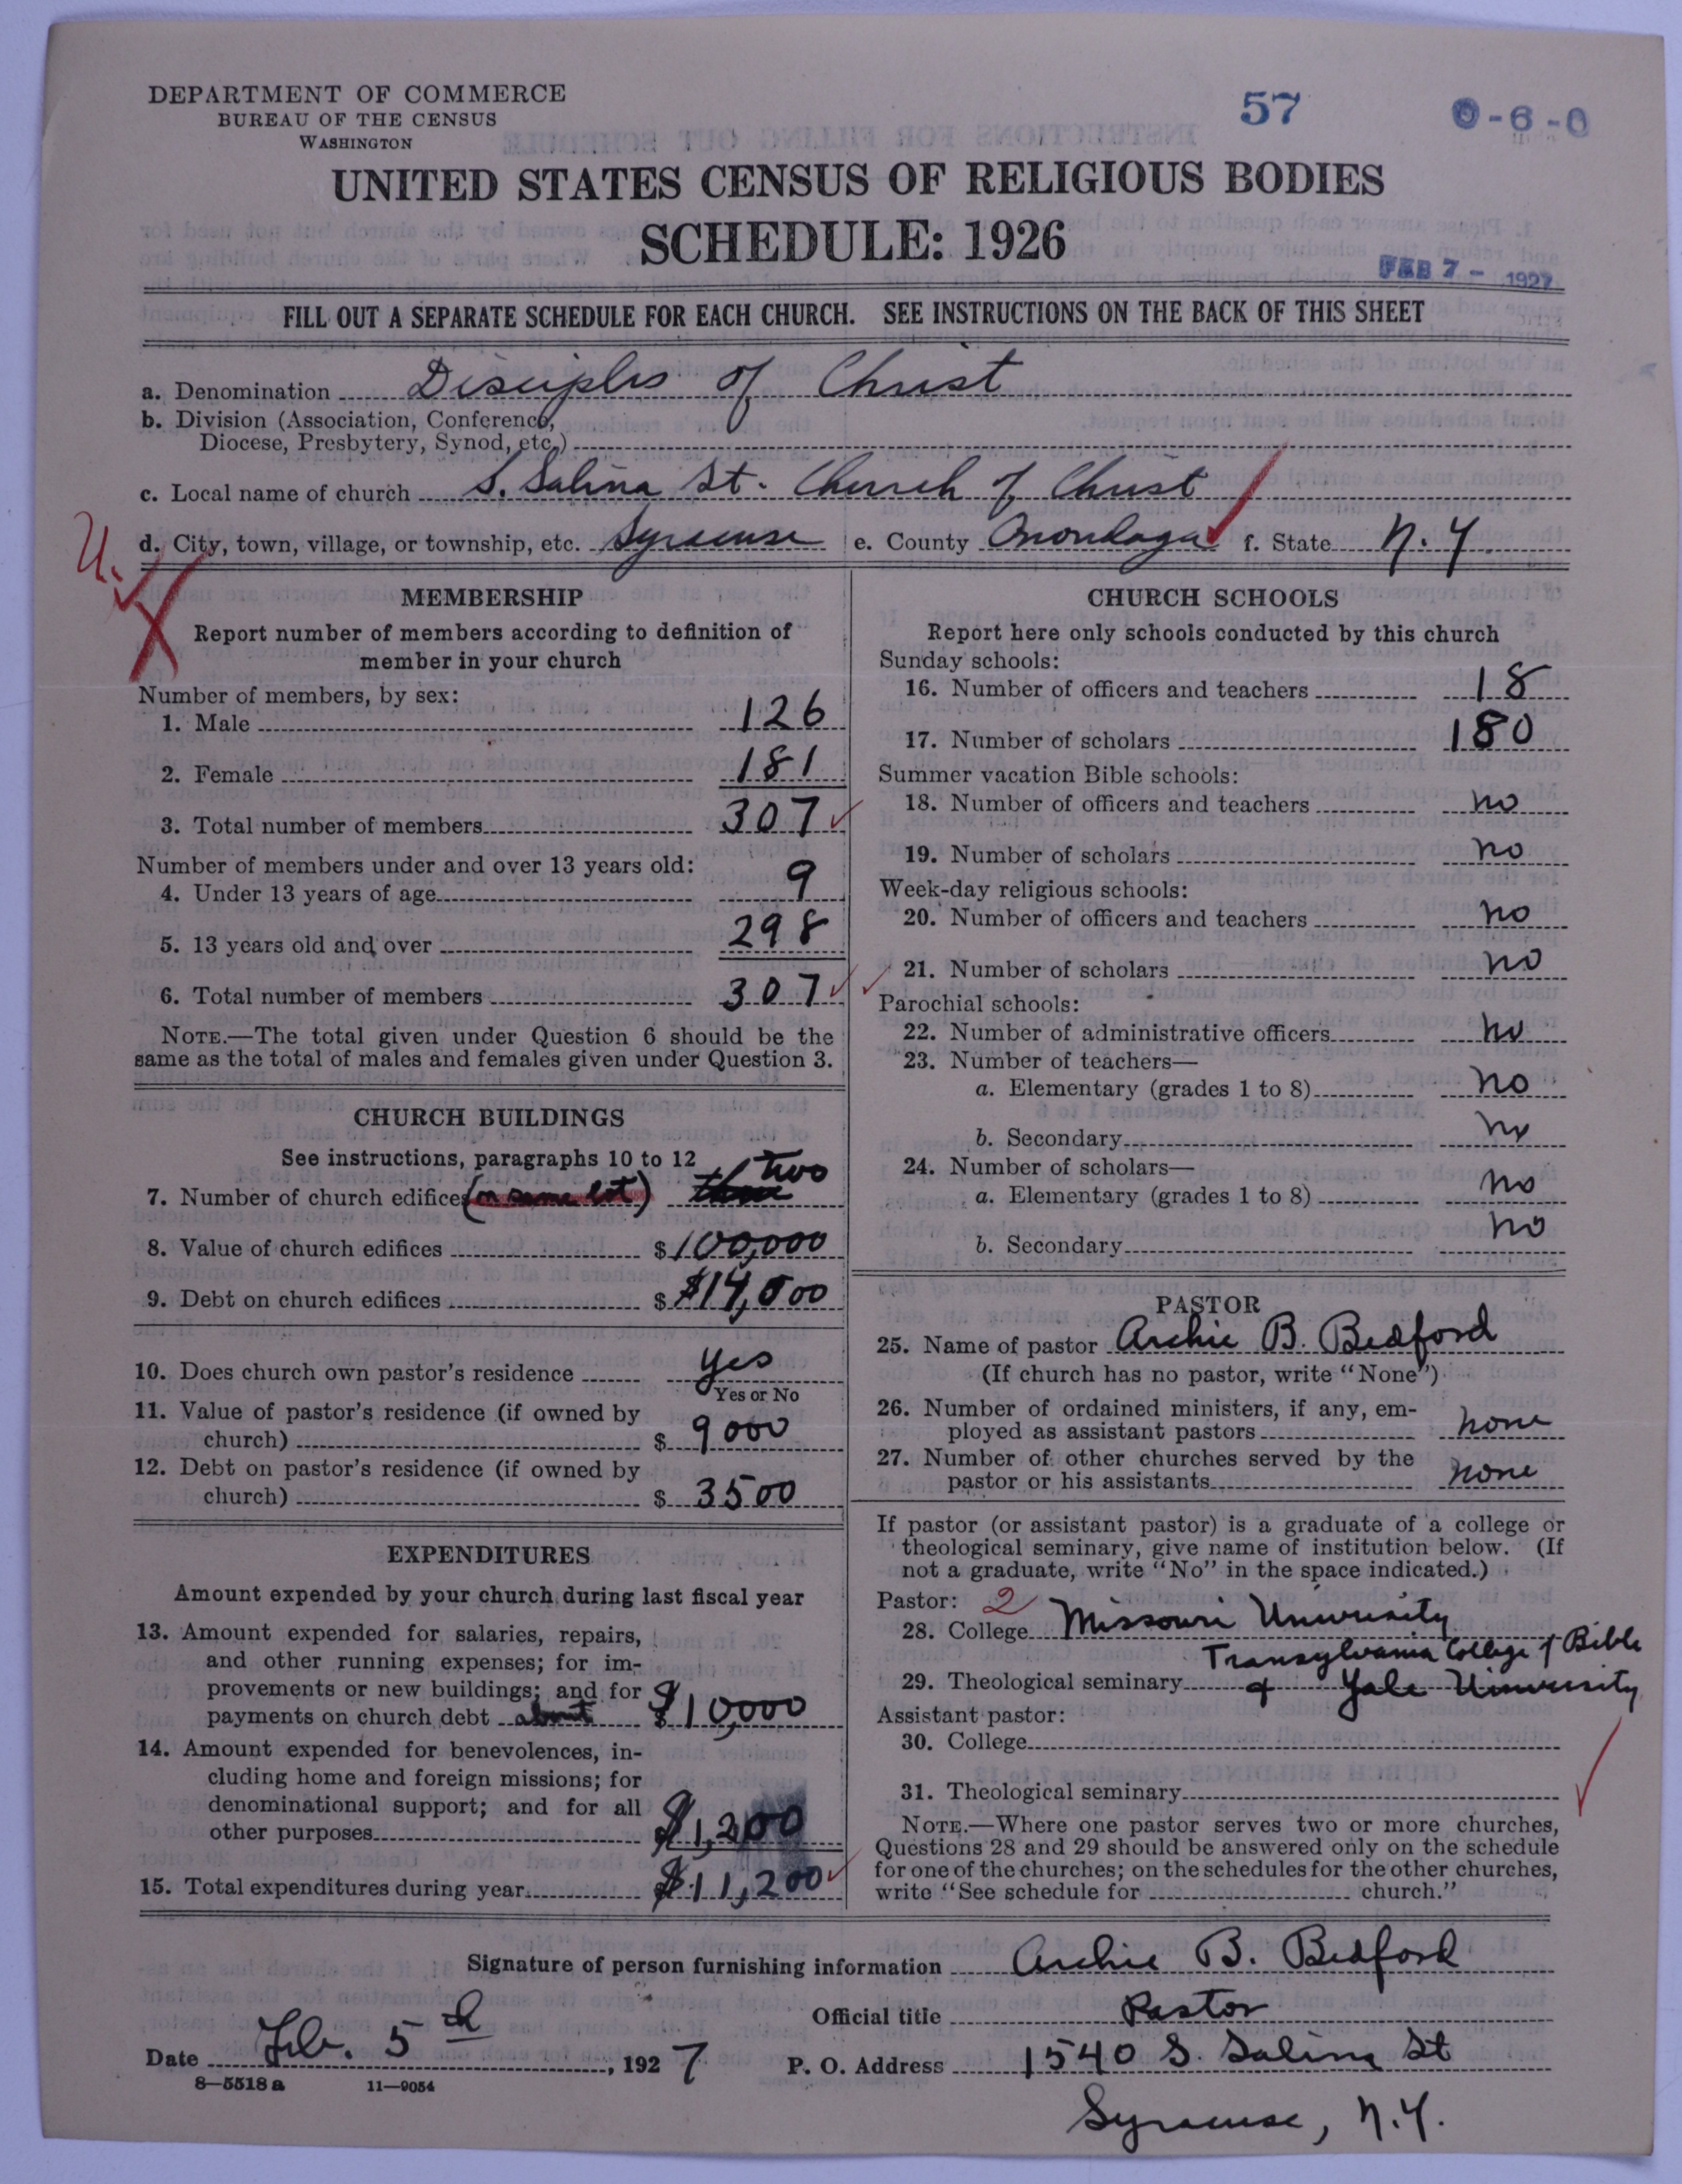 DEPARTMENT OF COMMERCE
BUREAU OF THE CENSUS
WASHINGTON
57
0-6-0
UNITED STATES CENSUS OF RELIGIOUS BODIES
SCHEDULE: 1926
FEB 7 - 1927
FILL OUT A SEPARATE SCHEDULE FOR EACH CHURCH. SEE INSTRUCTIONS ON THE BACK OF THIS SHEET
a. Denomination Disciples of Christ
b. Division (Association, Conference,
Diocese, Presbytery, Synod, etc.)
c. Local name of church S. Salina St. Church of Christ
d. City, town, village, or township, etc. Syracuse e. County Onondaga f. State N.Y.
U.
MEMBERSHIP
Report number of members according to definition of
member in your church
Number of members, by sex:
1. Male 126
2. Female 181
3. Total number of members 307
Number of members under and over 13 years old:
4. Under 13 years of age 9
5. 13 years old and over 298
6. Total number of members 307
NOTE.—The total given under Question 6 should be the
same as the total of males and females given under Question 3.
CHURCH BUILDINGS
See instructions, paragraphs 10 to 12
7. Number of church edifices (on same lot) two
8. Value of church edifices $100,000
9. Debt on church edifices $ $14,000
10. Does church own pastor's residence yes
Yes or No
11. Value of pastor's residence (if owned by
church) $ 9000
12. Debt on pastor's residence (if owned by
church) $ 3500
EXPENDITURES
Amount expended by your church during last fiscal year
13. Amount expended for salaries, repairs,
and other running expenses; for im-
provements or new buildings; and for
payments on church debt about $10,000
14. Amount expended for benevolences, in-
cluding home and foreign missions; for
denominational support; and for all
other purposes $1,200
15. Total expenditures during year $11,200
CHURCH SCHOOLS
Report here only schools conducted by this church
Sunday schools:
16. Number of officers and teachers 18
17. Number of scholars 180
Summer vacation Bible schools:
18. Number of officers and teachers no
19. Number of scholars no
Week-day religious schools:
20. Number of officers and teachers no
21. Number of scholars no
Parochial schools:
22. Number of administrative officers no
23. Number of teachers—
a. Elementary (grades 1 to 8) no
b. Secondary no
24. Number of scholars—
a. Elementary (grades 1 to 8) no
b. Secondary no
PASTOR
25. Name of pastor Archie B. Bedford
(If church has no pastor, write "None")
26. Number of ordained ministers, if any, em-
ployed as assistant pastors none
27. Number of other churches served by the
pastor or his assistants none
If pastor (or assistant pastor) is a graduate of a college or
theological seminary, give name of institution below. (If
not a graduate, write "No" in the space indicated.)
Pastor: 2
28. College Missouri University
Transylvania College of Bible
29. Theological seminary & Yale University
Assistant pastor:
30. College
31. Theological seminary
NOTE.—Where one pastor serves two or more churches,
Questions 28 and 29 should be answered only on the schedule
for one of the churches; on the schedules for the other churches,
write "See schedule for church."
Signature of person furnishing information Archie B. Bedford
Official title Pastor
Date Feb. 5th, 1927 P. O. Address 1540 S. Salina St
8—5518 a 11—9054
Syracuse, N.Y.